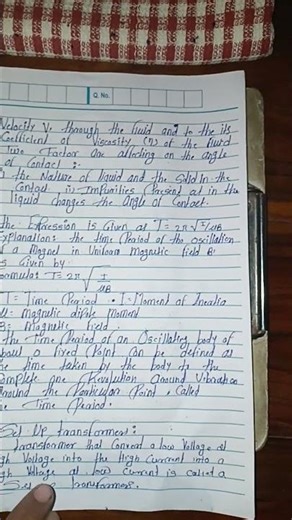 Q. No.
Velocity V. through the fluid and to the its
Coefficient of Viscosity (η) of the fluid
Two Factor One affecting on the angle
of Contact:
the Nature of liquid and the Solid in the
Contact ii Impurities Present at in the
liquid changes the Angle of Contact.
the Expression Is Given at T= 2π√I/MB
Explanation: the time Period of the oscillation
of a Magnet in Uniform Magnetic field B.
is Given by
formula: T= 2π√I/MB
T= Time Period . I= Moment of Inertia
M= magnetic dipole moment
B= Magnetic field.
the Time Period of an Oscillating body of
about a fixed Point Can be defined as
the time taken by the body to the
Complete one Revolution Around Vibration
around the Particular Point , Called
Time Period.
Set Up transformer:
transformer that Convert a low Voltage at
gh Voltage into the High Current into a
gh Voltage at low Current is called a
Set transformer.